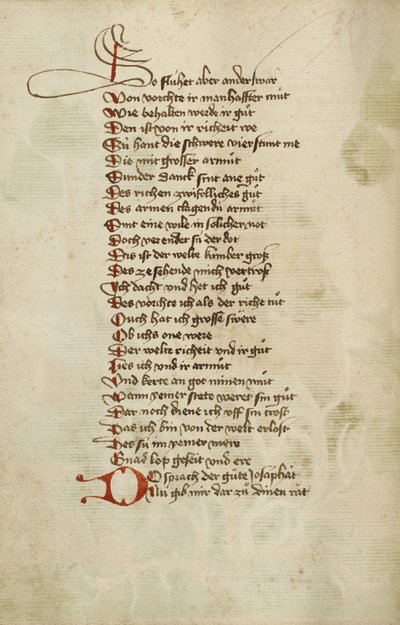 So fluhet aber anderswar
Von vorchte ir manhaffter mut
Wie behalten werde ir gůt
Den ist von ir richeit we
Sů hant die schwere vierstunt me
Die mit grosser armůt
Sunder danck sint ane gůt
Des richen zwifelliches gůt
Des armen clagendů armůt
Sint eine wile in solicher not
Doch verendet sů der dot
Dis ist der welte kumber groß
Des ze sehende mich vertroß
Ich dacht und het ich gůt
Des vörchte ich als der riche tůt
Ouch hat ich grosse swere
Ob ichs one were
Der welte richeit und ir gůt
Lies ich und ir armůt
Und kerte an got minen můt
Wann yemer stete weret sin gůt
Dar noch diene ich uff sin trost
Das ich bin von der welt erlost
Des sů im yemer mere
Gnad lop geseit und ere
Do sprach der gůte Josaphat
Nů gib mir dar zů dinen rat